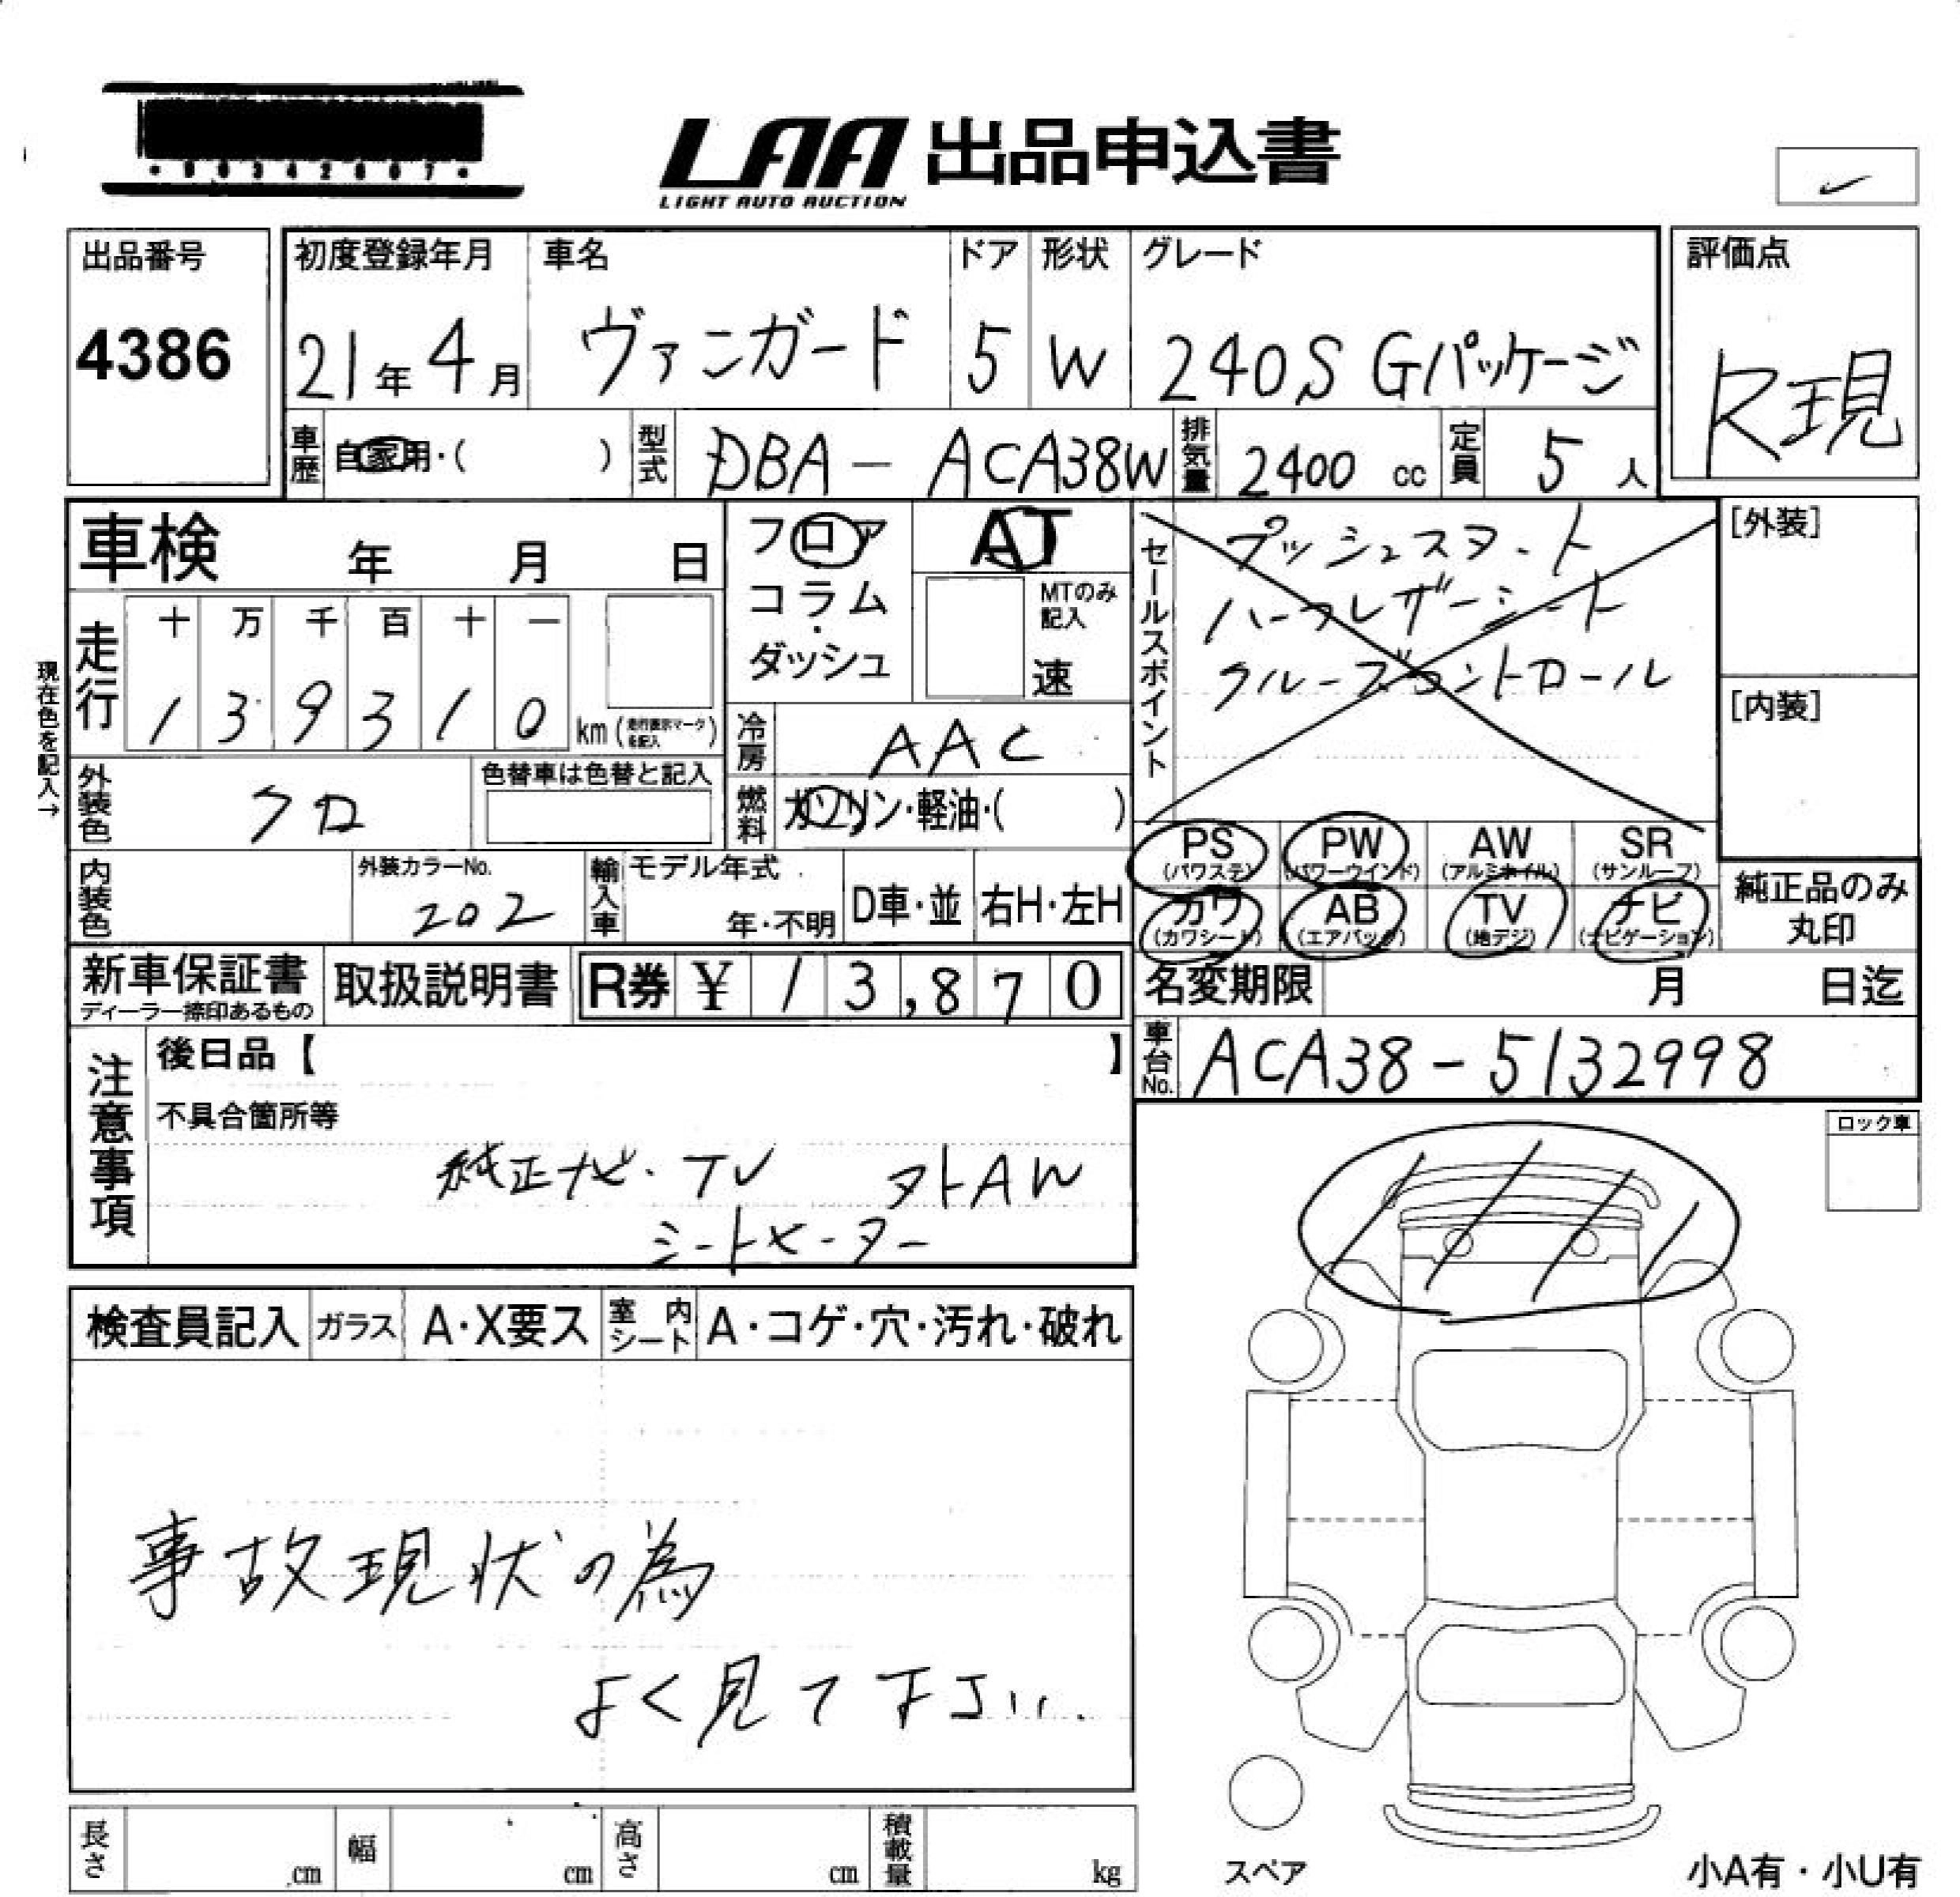 LAA 出品申込書
LIGHT AUTO AUCTION
出品番号
4386
初度登録年月
21年 4月
車名
ヴァンガード
ドア
5
形状
W
グレード
240S Gパッケージ
評価点
R現
車歴
自家用・( )
型式
DBA-ACA38W
排気量
2400 cc
定員
5 人
車検 年 月 日
フロア
コラム・
ダッシュ
AT
MTのみ
記入
速
セールスポイント
プッシュスタート
ハーフレザーシート
クルーズコントロール
[外装]
[内装]
現在色を記入→
走行
十 万 千 百 十 一
1 3 9 3 1 0
km (走行表示マークを記入)
冷房
AAC
外装色
クロ
色替車は色替と記入
燃料
ガソリン・軽油・( )
PS
(パワステ)
PW
(パワーウインド)
AW
(アルミホイル)
SR
(サンルーフ)
カワ
(カワシート)
AB
(エアバック)
TV
(地デジ)
ナビ
(ナビゲーション)
純正品のみ
丸印
内装色
外装カラーNo.
202
輸入車
モデル年式
年・不明
D車・並
右H・左H
新車保証書
ディーラー捺印あるもの
取扱説明書
R券 ¥ 13,870
名変期限 月 日迄
車台No.
ACA38-5132998
注意事項
後日品【 】
不具合箇所等
純正ナビ・TV 外AW
シートヒーター
ロック車
検査員記入
ガラス
A・X要ス
室内シート
A・コゲ・穴・汚れ・破れ
事故現状の為
よく見て下さい.
長さ cm
幅 cm
高さ cm
積載量 kg
スペア
小A有・小U有